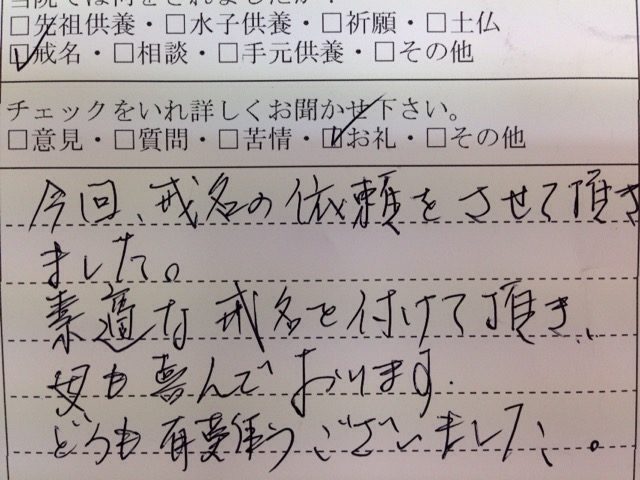 当院では何をされましたか?
□先祖供養・□水子供養・□祈願・□土仏
☑戒名・□相談・□手元供養・□その他
チェックをいれ詳しくお聞かせ下さい。
□意見・□質問・□苦情・☑お礼・□その他
今回、戒名の依頼をさせて頂き
ました。
素適な戒名を付けて頂き、
母も喜んでおります.
どうも有難うございました。